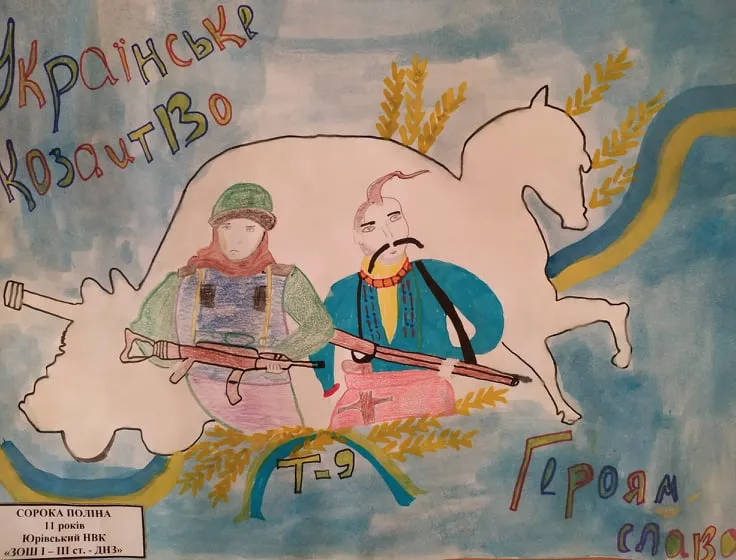 Українське
Козацтво
Т-9
Героям
слава
СОРОКА ПОЛІНА
11 років
Юрівський НВК
«ЗОШ І – ІІІ ст. - ДНЗ»